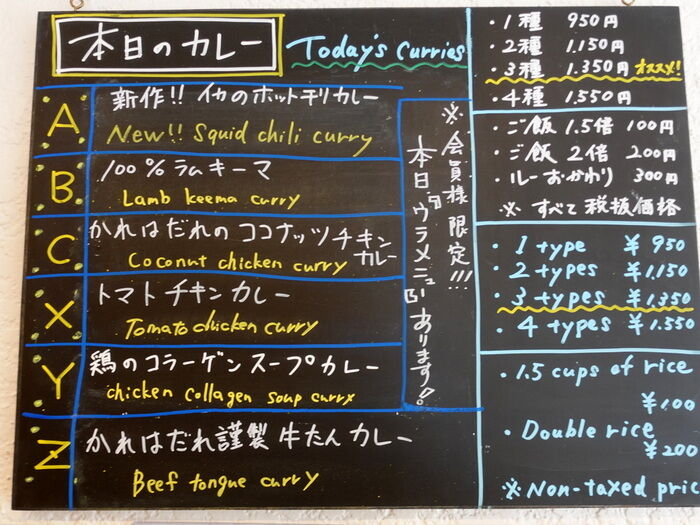 本日のカレー
Today's Curries
A
新作!! イカのホットチリカレー
New!! Squid chili curry
B
100%ラムキーマ
Lamb keema curry
C
かれはだれの ココナッツチキンカレー
Coconut chicken curry
X
トマトチキンカレー
Tomato chicken curry
Y
鶏のコラーゲンスープカレー
chicken collagen soup curry
Z
かれはだれ謹製 牛たんカレー
Beef tongue curry
※会員様限定!!!
本日"ウラメニュー"あります!
・1種 950円
・2種 1.150円
・3種 1.350円 オススメ!
・4種 1.550円
・ご飯 1.5倍 100円
・ご飯 2倍 200円
・ルーおかわり 300円
※すべて税抜価格
・1 type ¥950
・2 types ¥1.150
・3 types ¥1.350
・4 types ¥1.550
・1.5 cups of rice
¥100
・Double rice
¥200
※Non-taxed pric